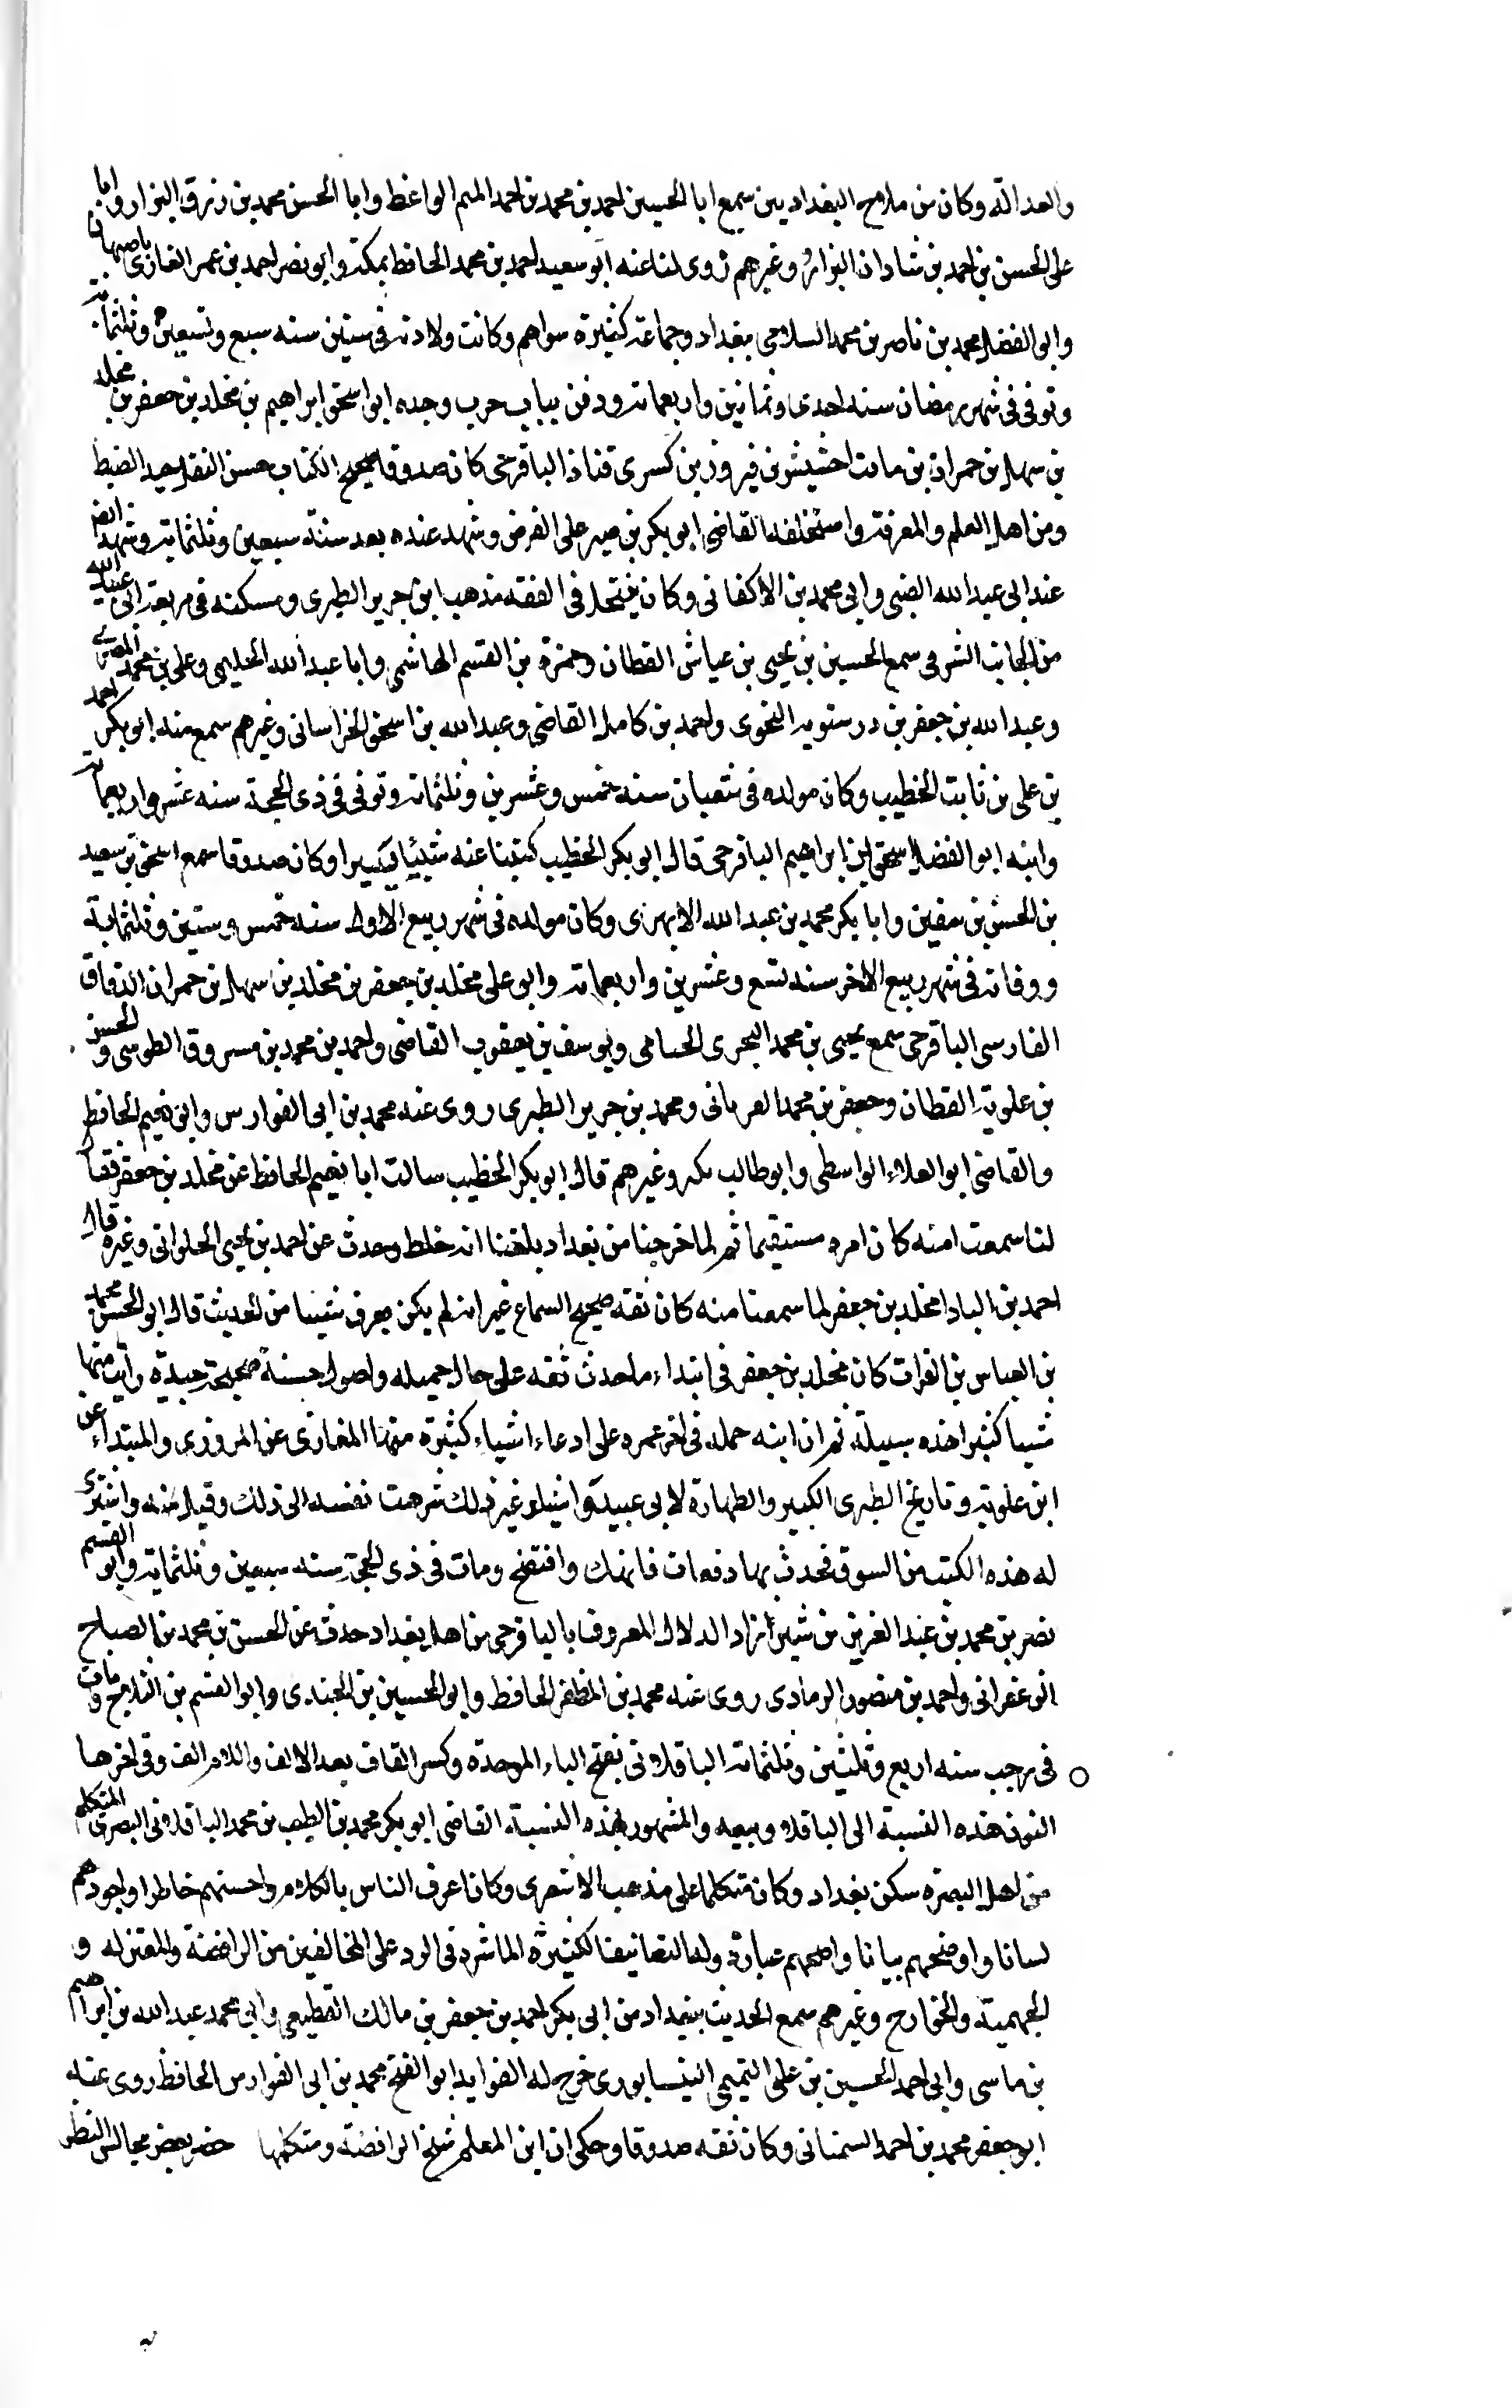 والعدالة وكان من ملاح البغداديين سمع ابا الحسين احمد بن محمد بن احمد المتيم الواعظ وابا الحسن محمد بن رزق البزاز وابا
علي الحسن بن احمد بن شاذان البزاز وغيرهم روى لنا عنه ابو سعيد احمد بن محمد الحافظ بمكة وابو نصر احمد بن عمر الغازي باصبهان
وابو الفضل محمد بن ناصر بن محمد السلامي ببغداد وجماعة كثيرة سواهم وكانت ولادته في سنين سنه سبع وتسعين وثلثمائة
وتوفي في شهر رمضان سنه احدى وثمانين واربعمائه ودفن بباب حرب وجده ابو اسحق ابراهيم بن مخلد بن جعفر بن مخلد
بن سهل بن حمران بن مافت احشيش بن فيروز بن كسرى قباذ الباقرحي كان صدوقا صحيح الكتاب حسن النقل جيد الضبط
ومن اهل العلم والمعرفة واستخلفه القاضي ابو بكر بن صبر على الفرض وشهد عنده بعد سنة سبعين وثلثمائة وشهد ايضا
عند ابي عبد الله الضبي وابي محمد بن الاكفاني وكان ينتحل في الفقه مذهب ابن جرير الطبري ومسكنه في مربعة ابي عبيد الله
من الجانب الشرقي سمع الحسين بن يحيى بن عياش القطان وحمزة بن القسم الهاشمي وابا عبد الله الحليمي وعلي بن محمد المصري
وعبد الله بن جعفر بن درستويه النحوي واحمد بن كامل القاضي وعبد الله بن اسحق الخراساني وغيرهم سمع منه ابو بكر احمد
بن علي بن ثابت الخطيب وكان مولده في شعبان سنه خمس وعشرين وثلثمائه وتوفي في ذي الحجة سنه عشر واربعمائة
وابنه ابو الفضل اسحق بن ابراهيم الباقرحي قال ابو بكر الخطيب كتبنا عنه شيئا يسيرا وكان صدوقا سمع اسحق بن سعيد
بن الحسن بن سفين وابا بكر محمد بن عبد الله الابهري وكان مولده في شهر ربيع الاول سنه خمس وستين وثلثمائة
ووفاته في شهر ربيع الاخر سنه تسع وعشرين واربعمائه وابو علي مخلد بن جعفر بن مخلد بن سهل بن حمران الدقاق
الفارسي الباقرحي سمع يحيى بن محمد البحري الحنامي ويوسف بن يعقوب القاضي واحمد بن محمد بن مسروق الطوسي والحسن
بن علوية القطان وجعفر بن محمد الفريابي ومحمد بن جرير الطبري روى عنه محمد بن ابي الفوارس وابو نعيم الحافظ
والقاضي ابو العلاء الواسطي وابو طالب بكر وغيرهم قال ابو بكر الخطيب سالت ابا نعيم الحافظ عن مخلد بن جعفر فقال
لنا سمعت امنه كان امره مستقيما ثم لما خرجنا من بغداد بلغنا انه خلط وحدث عن احمد بن يحيى الحلواني وغيره قال
احمد بن البادا مخلد بن جعفر لما سمعنا منه كان ثقه صحيح السماع غير انه لم يكن يعرف شيئا من الحديث قال ابو الحسن محمد
بن العباس بن الفرات كان مخلد بن جعفر في ابتداء ما حدث ثقه على حال جميله واصول حسنة صحيحة جيدة رايت منها
شيا كثيرا اخذه بسبيله ثم ان ابنه حمله في اخر عمره على ادعاء اشياء كثيرة منها المغازي عن المروزي والمبتداء عن
ابن علوية وتاريخ الطبري الكبير والطهارة لابي عبيد واشياء غير ذلك شرهت نفسه الى ذلك وقيل منه واشترى
له هذه الكتب من السوق فحدث بها دفعات فانهتك وافتضح ومات في ذي الحجة سنه سبعين وثلثمائة وابو القسم
نصر بن محمد بن عبد العزيز بن شيرازاد الدلال المعروف بالباقرحي من اهل بغداد حدث عن الحسن بن محمد بن الصباح
الزعفراني واحمد بن منصور الرمادي روى عنه محمد بن المظفر الحافظ وابو الحسين بن الجندي وابو القسم بن الثلاج ومات
في رجب سنه اربع وثلثين وثلثمائه الباقلاني بفتح الباء الموحدة وكسر القاف بعد الالف واللام الف وفي اخرها
النون هذه النسبة الى الباقلا وبيعه والمشهور بهذه النسبة القاضي ابو بكر محمد بن الطيب بن محمد الباقلاني البصري المتكلم
من اهل البصرة سكن بغداد وكان متكلما على مذهب الاشعري وكان اعرف الناس بالكلام واحسنهم خاطرا واجودهم
لسانا واوضحهم بيانا واصحهم عبارة وله التصانيف الكثيرة الماشرة في الرد على المخالفين من الرافضة والمعتزله و
الجهمية والخوارج وغيرهم سمع الحديث ببغداد من ابي بكر احمد بن جعفر بن مالك القطيعي وابي محمد عبد الله بن ابراهيم
بن ماسي وابي احمد الحسين بن علي التميمي النيسابوري خرج له الفوايد ابو الفتح محمد بن ابي الفوارس الحافظ روى عنه
ابو جعفر محمد بن احمد السمناني وكان ثقه صدوقا وحكي ان ابن المعلم شيخ الرافضة ومتكلمها حضر بعض مجالس النظر